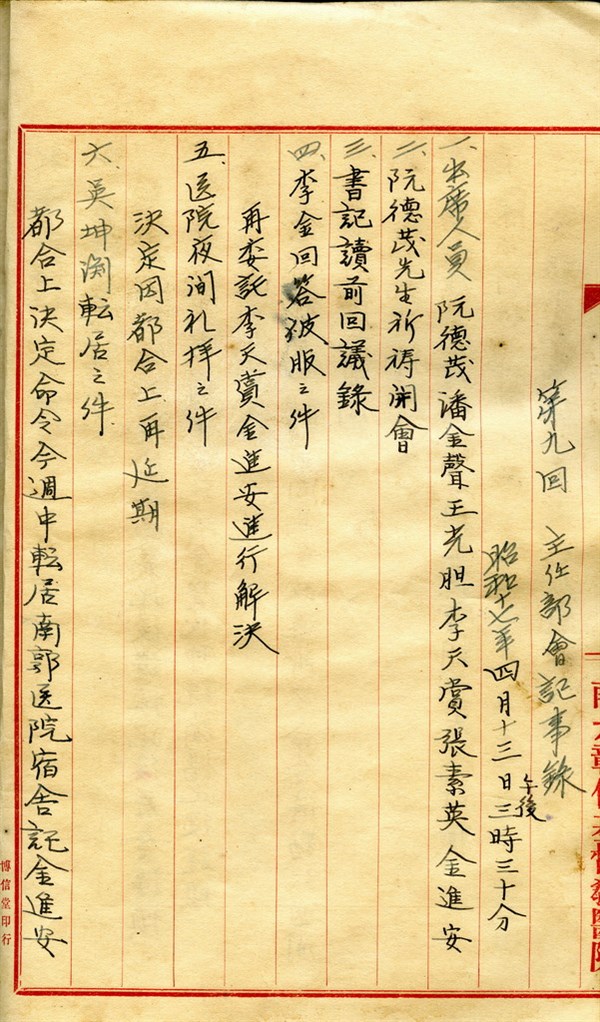 第九回　主任部會記事錄
昭和十七年四月十三日午後三時三十分
一、出席人員　阮德茂 潘金聲 王光胆 李天賞 張素英 金進安
二、阮德茂先生祈禱開會
三、書記讀前回議錄
四、李金回答被服之件
再委託李天賞金進安進行解決
五、医院夜间礼拝之件
決定因都合上再延期
六、吳坤渕転居之件
都合上決定命令今週中転居南郭医院宿舎託金進安
博信堂印行